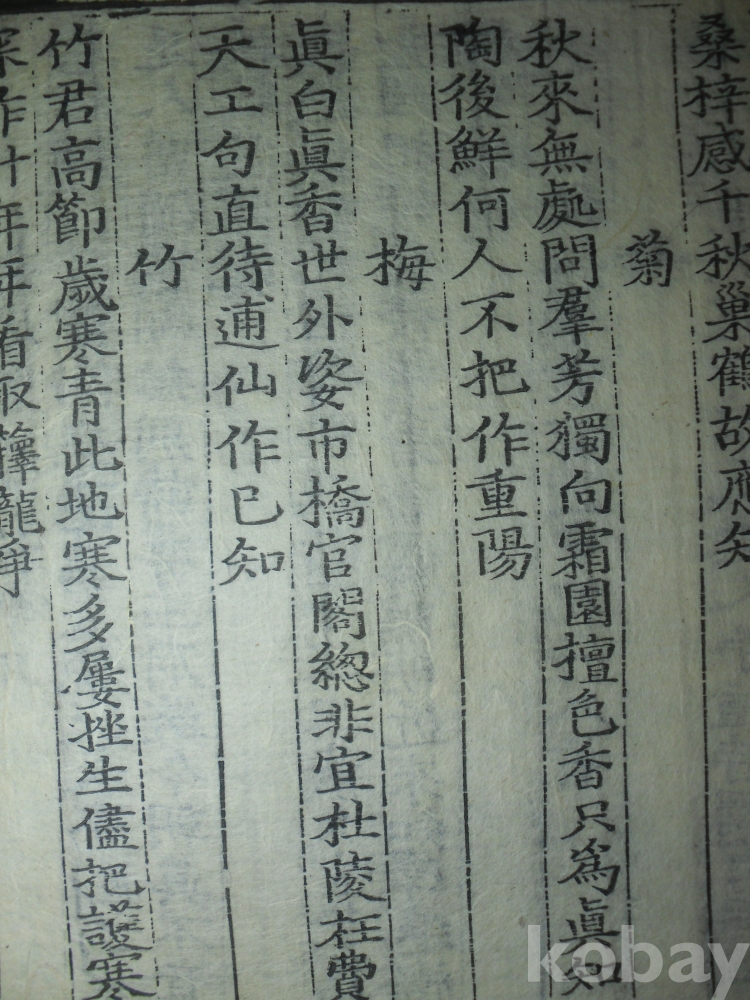 桑梓感千秋巢鶴故應知
菊
秋來無處問羣芳獨向霜園擅色香只爲眞知
陶後鮮何人不把作重陽
梅
眞白眞香世外姿市橋官閣總非宜杜陵枉費
天工句直待逋仙作已知
竹
竹君高節歲寒青此地寒多屢挫生儘把護寒
深作計年年看取籜龍爭
kobay